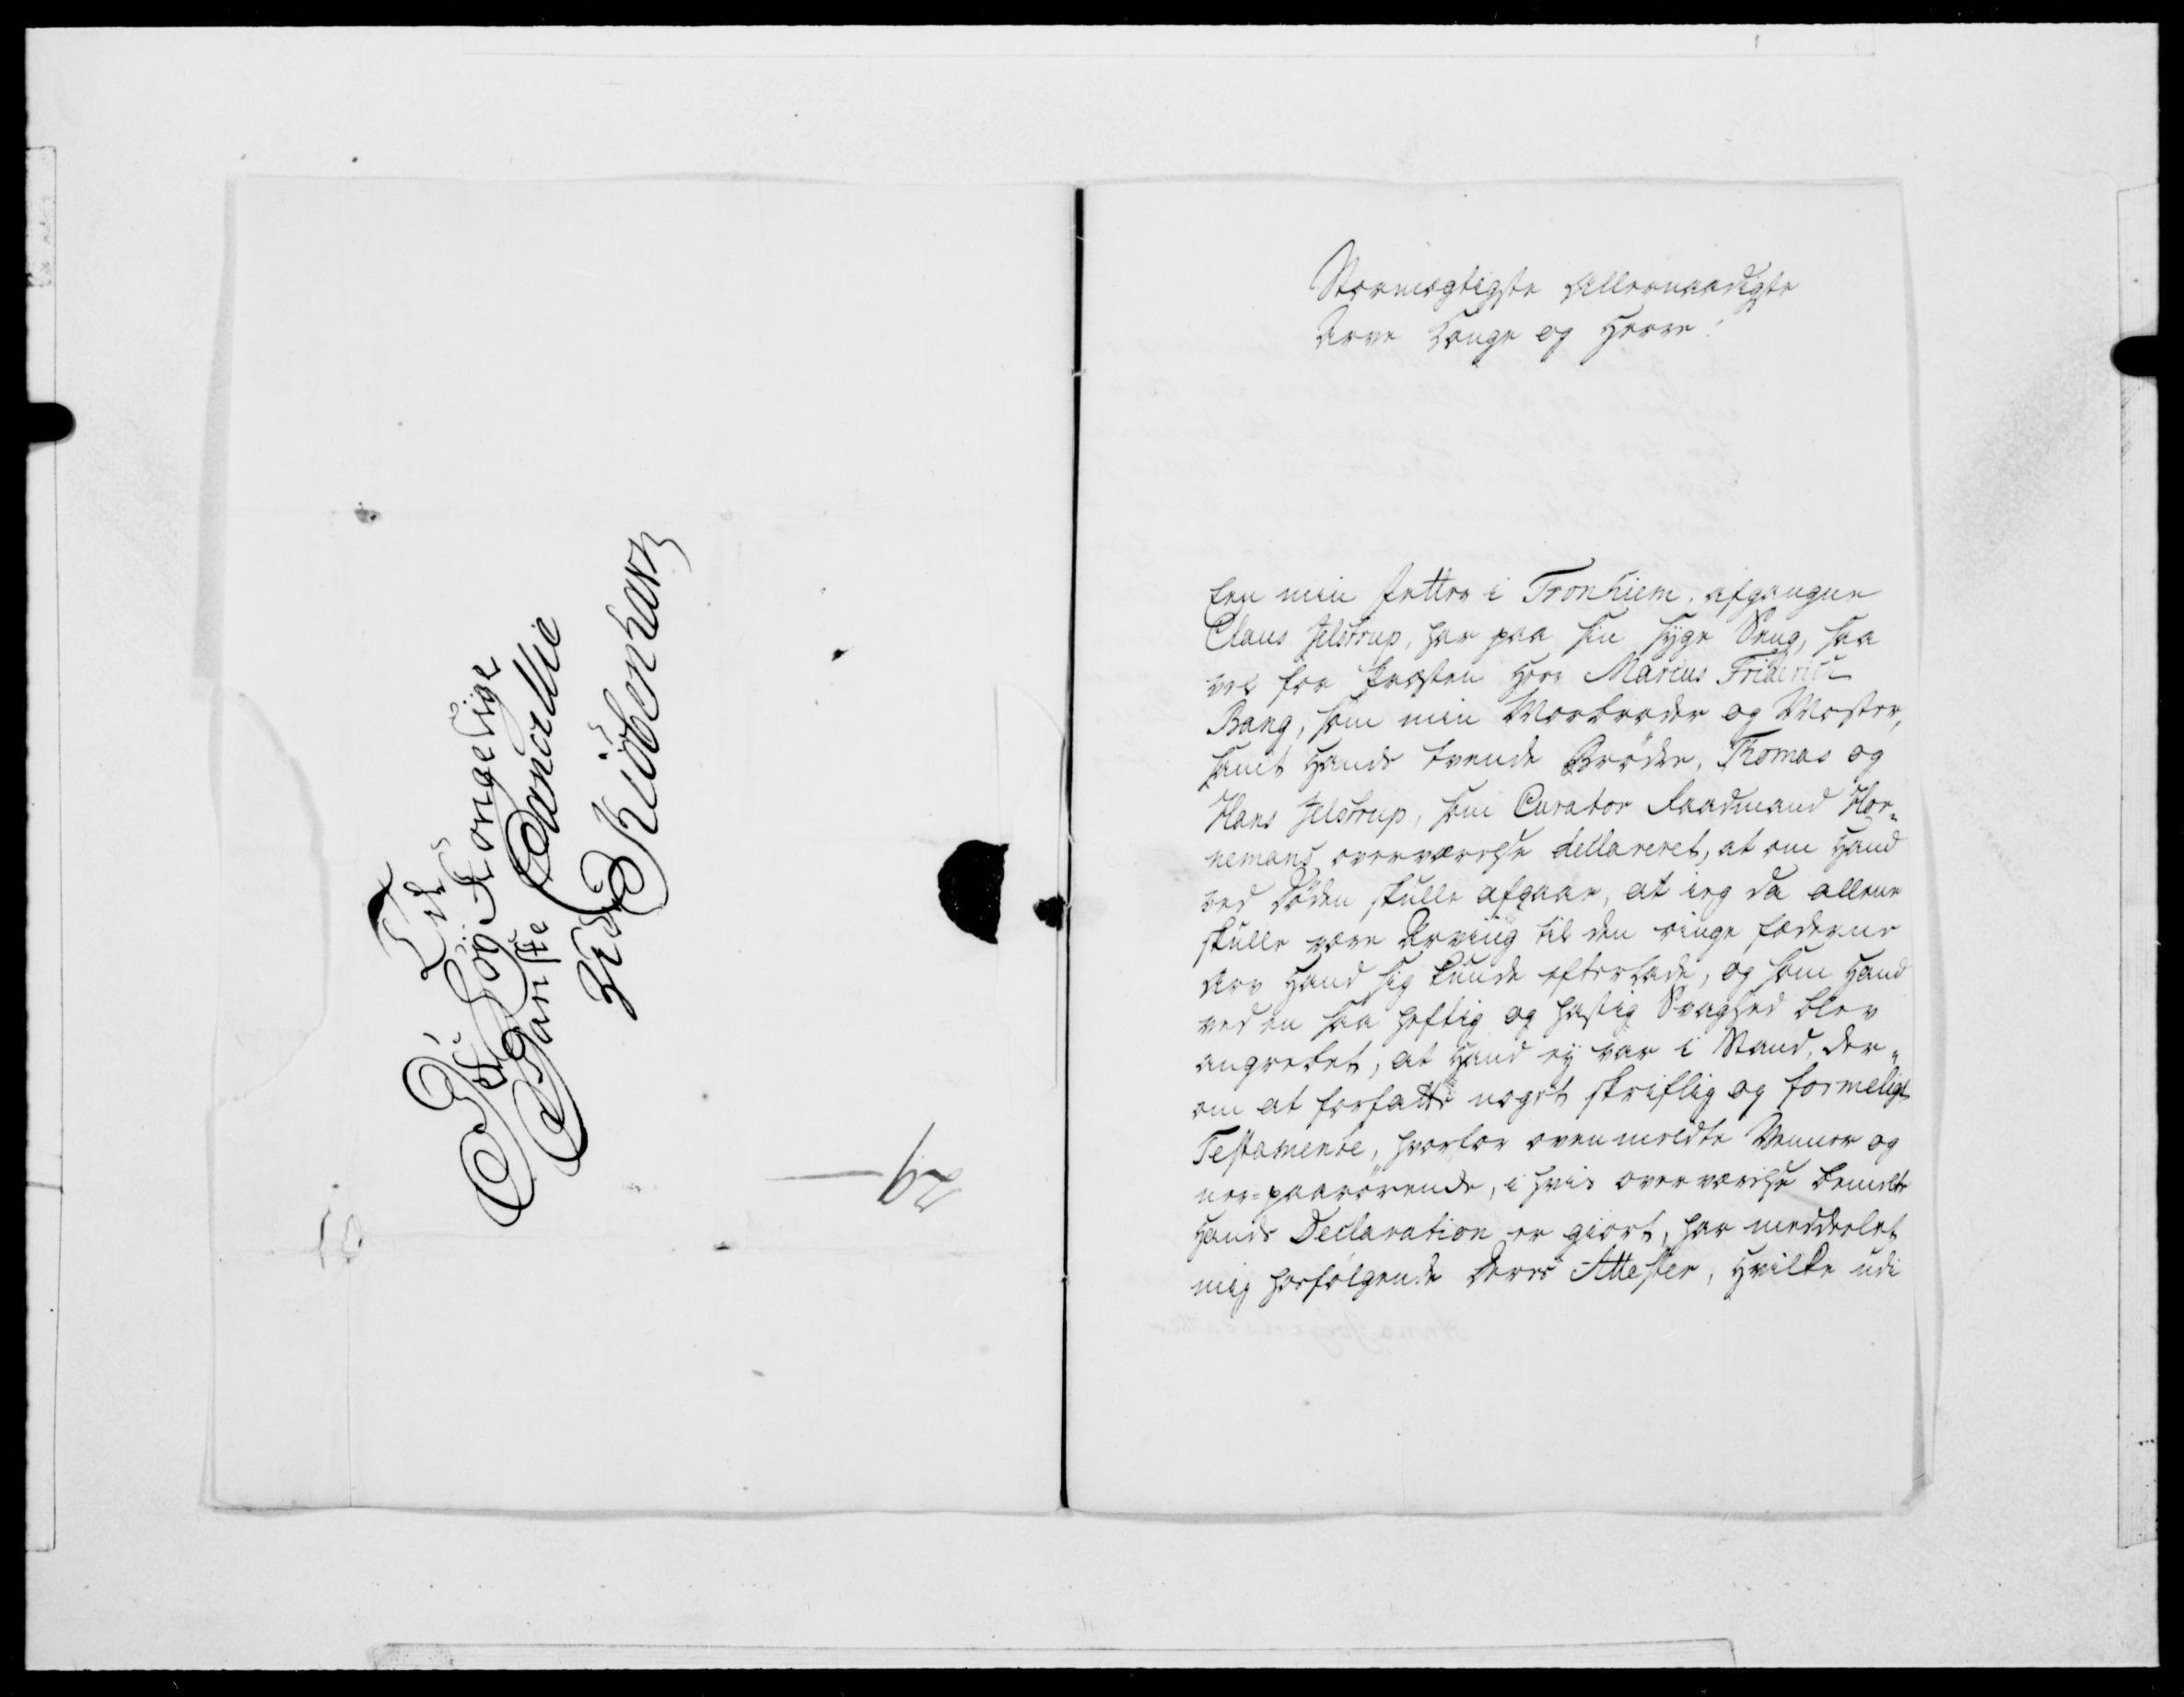 Til
Det Höy Kongelige
Danske Cancellie
udi
Kiöbenhavn
29
Stormægtigste Allernaadigste
Arve Konge og Herre!
Een min Fetter i Tronhiem, afgangne
Claus Jelstrup, har paa sin Syge Seng, saa
vel for Præsten Herr Marcus Friderich
Bang, som min Morbroder og Moster,
samt Hands tvende Brödre, Thomas og
Hans Jelstrup, som Curator Raadmand Hor-
nemans overværelse declareret, at om Hand
ved Döden skulle afgaae, at ieg da allene
skulle være Arving til den ringe fæderne
Arv Hand sig kunde efterlade, og som Hand
ved en saa heftig og hastig Svaghed blev
angrebet, at Hand ey var i Stand, der-
om at forfatte noget skriftlig og formeligt
Testamente, hvorfor ovenmeldte Venner og
nær-paarörende, i hvis overværelse bemelte
Hands Declaration er giort, har meddeelet
mig herfölgende deres Attester, hvilke udi